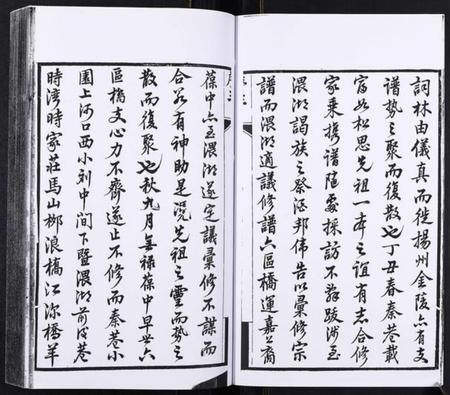 詞林由儀真而徙揚州金陵亦有支
譜勢之聚而復散也丁丑春秦巷載
富如松思先祖一本之誼有志合修
家乘携譜隨處採訪不辭跋涉至
渑湖謁族之祭酒邦偉告以彙修宗
譜而渑湖適議修譜六區橋運嘉公裔
葆中亦至渑湖遂定議彙修不謀而
合若有神助是冥先祖之靈而勢之
散而復聚也秋九月無祿葆中早世六
區橋支心力不齊遂止不修而秦巷小
園上河口西小刘中間下暨渑湖前後巷
時湾時家莊馬山柳浪橋江沵橋羊